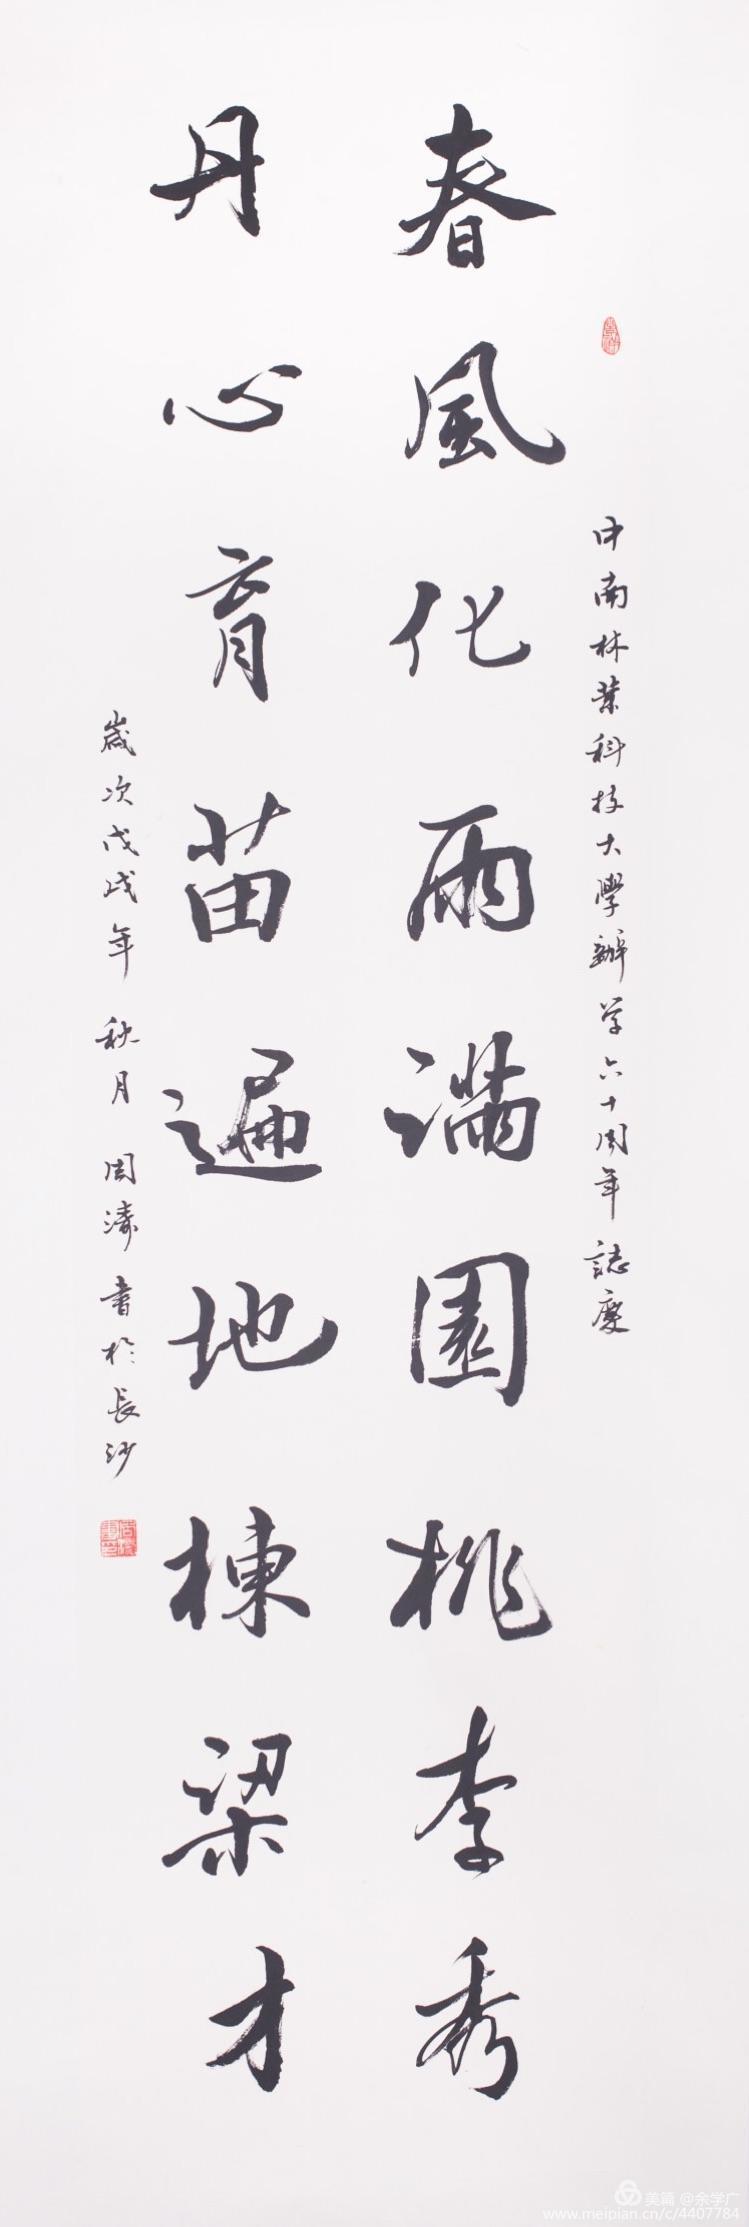 中南林業科技大學辦学六十周年誌慶
春風化雨满園桃李秀
丹心育苗遍地棟梁才
歲次戊戌年秋月周濤書於長沙
美篇 @余学广
www.meipian.cn/c/4407784